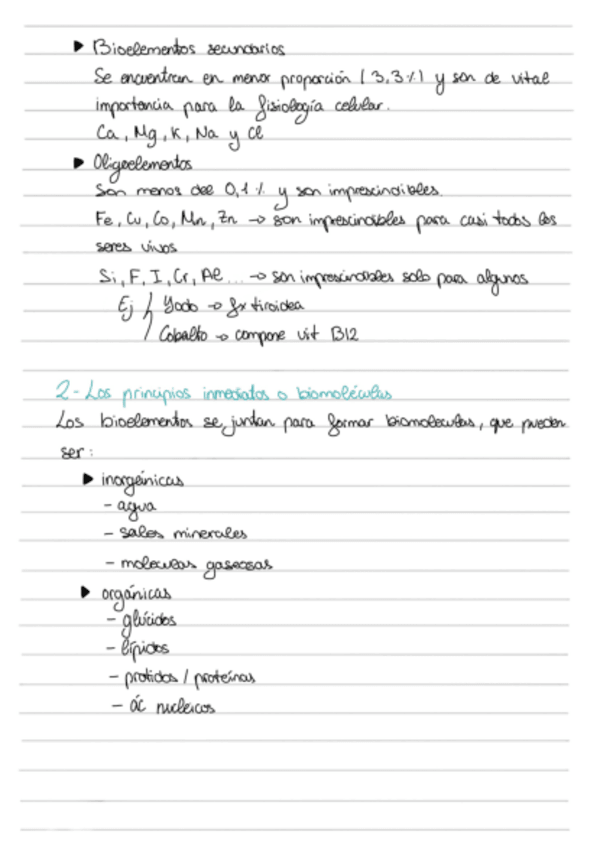 ▶ Bioelementos secundarios
Se encuentran en menor proporción (3,3%) y son de vital
importancia para la fisiología celular.
Ca, Mg, K, Na y Cl
▶ Oligoelementos
Son menos del 0,1% y son imprescindibles.
Fe, Cu, Co, Mn, Zn → son imprescindibles para casi todos los
seres vivos
Si, F, I, Cr, Al... → son imprescindibles solo para algunos
Ej Yodo → fx tiroidea
Cobalto → compone vit B12
2- Los principios inmediatos o biomoléculas
Los bioelementos se juntan para formar biomoleculas, que pueden
ser:
▶ inorgánicas
- agua
- sales minerales
- moleculas gaseosas
▶ orgánicas
- glúcidos
- lípidos
- protidos / proteínas
- ác nucleicos